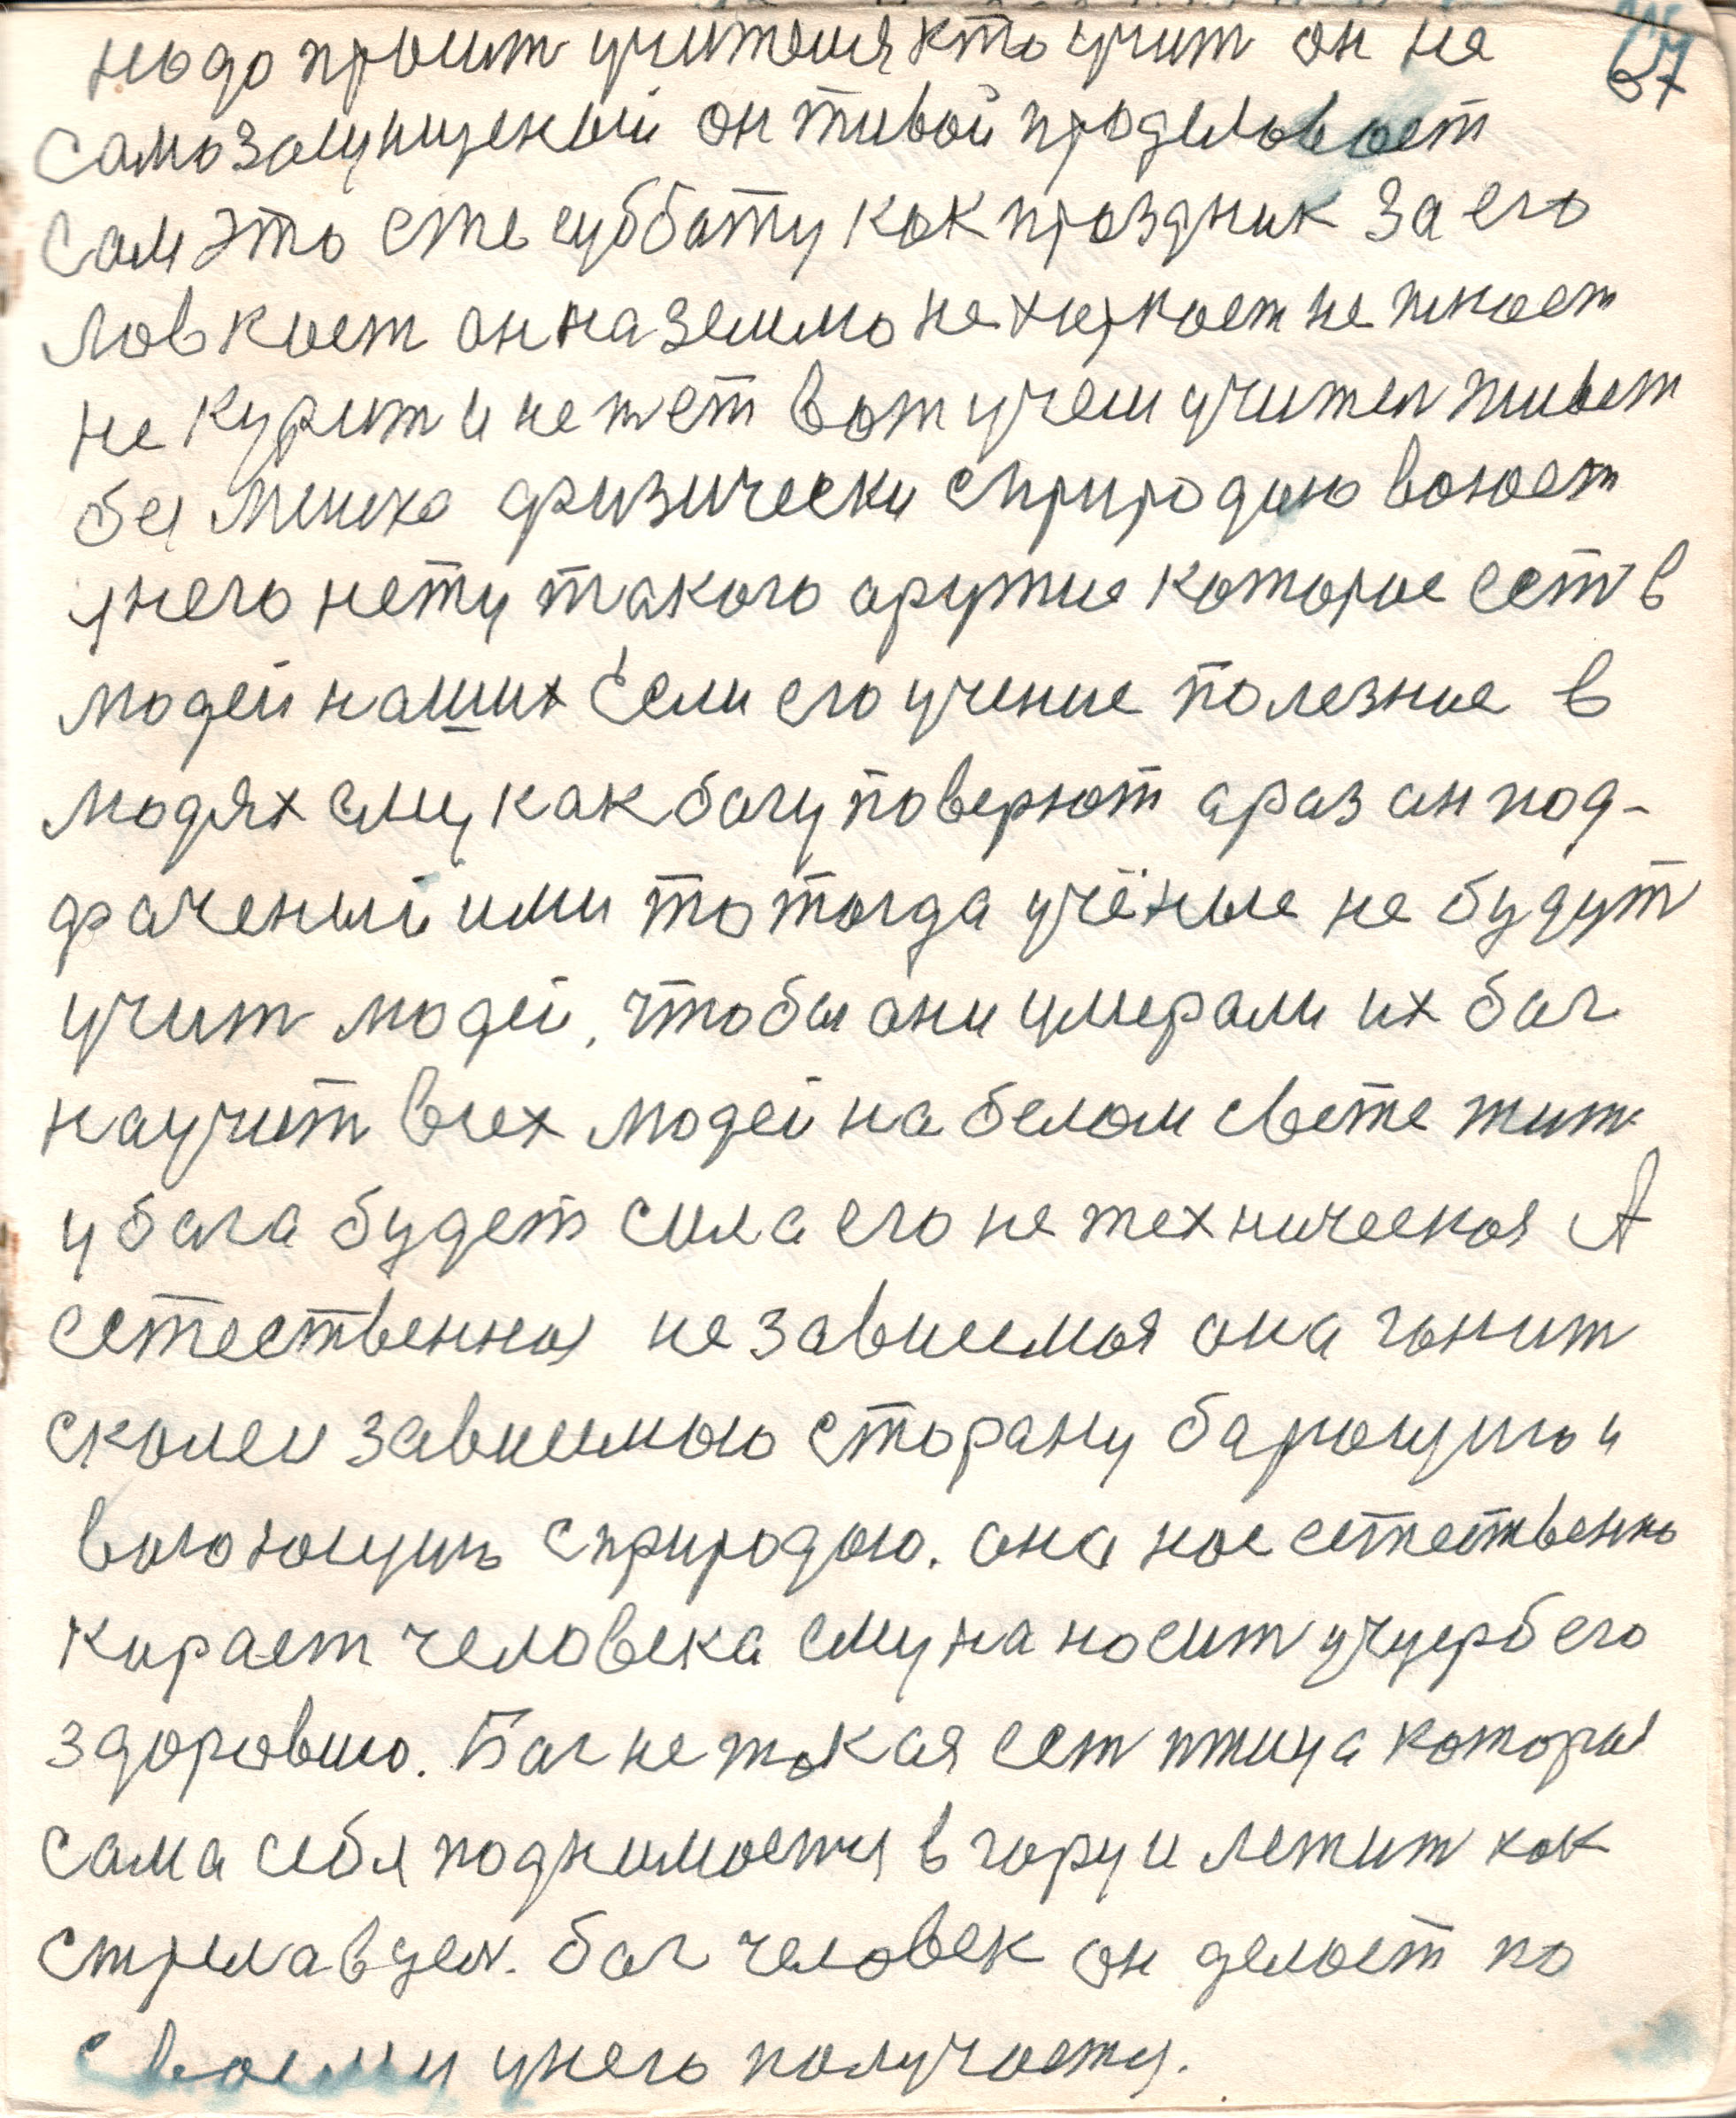 37
надо просит учителя кто учит он не
самозащищеный он тивой проделовает
сам это сте суббату как праздник за его
Ловкает он на землю не харкает не пюет
не курит и не пет вот учем учител живет
без меика физически сприродаю воюет
унего нету такого аружие которое сст в
Людей наших Если его учение полезние в
Людях ему как богу поверют араз он под-
драченый ими то тогда учёные не будут
учит людей, чтобы они умерали их бог
научит всех Людей на белом свете жит
у бога будет сила его не техническоя А
естественноя не зависемоя она гонит
сколеи зависемою сторану барющию и
воюющию сприродою. она нос естественно
карает человека ему на носит учуерб его
здоровию. Бог не токая сст птица которая
сама себя поднимается в гору и летит как
стрела в цел. бог человек он делоет по
своему унего получаетц.